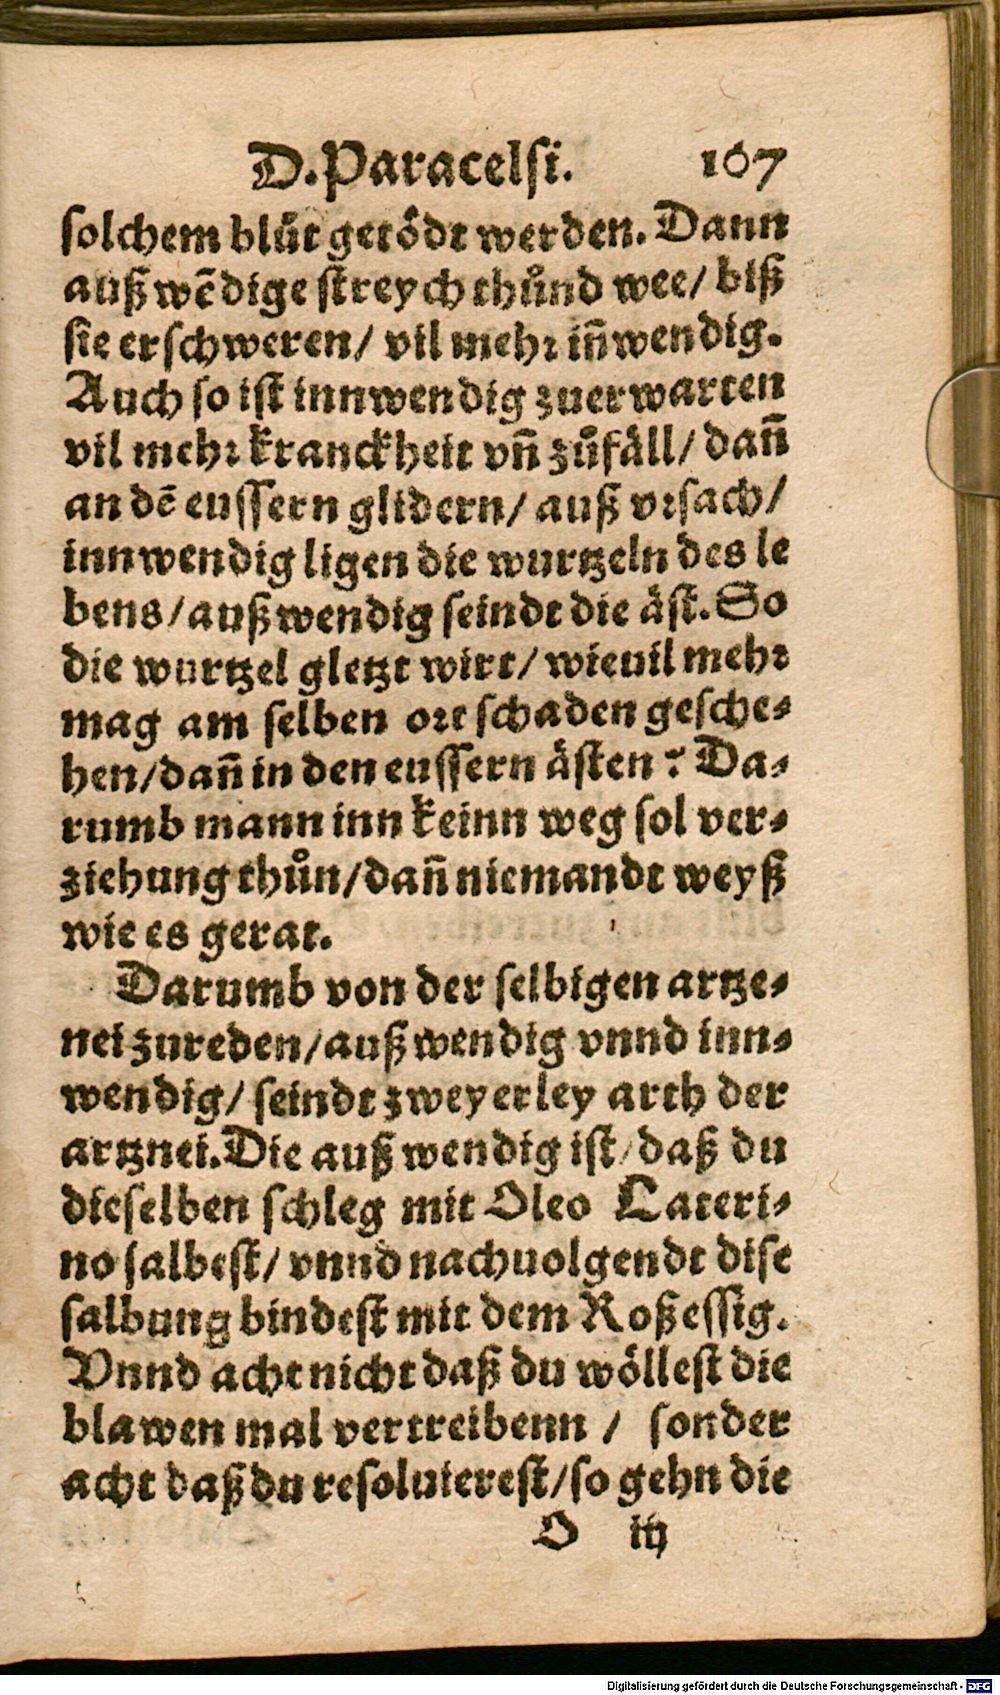 D. Paracelsi. 167
solchem blůt getödt werden. Dann
außwēdige streych thůnd wee/ biß
sie erschweren/ vil mehr iñwendig.
Auch so ist innwendig zuerwarten
vil mehr kranckheit vñ zůfäll/ dañ
an dē eussern glidern/ auß vrsach/
innwendig ligen die wurtzeln des le
bens/ außwendig seindt die äst. So
die wurtzel gletzt wirt/ wieuil mehr
mag am selben ort schaden gesche-
hen/ dañ in den eussern ästen? Da-
rumb mann inn keinn weg sol ver-
ziehung thůn/ dañ niemandt weyß
wie es gerat.
Darumb von der selbigen artze-
nei zureden/ außwendig vnnd inn-
wendig/ seindt zweyerley arth der
artznei. Die außwendig ist/ daß du
dieselben schleg mit Oleo Lateri-
no salbest/ vnnd nachuolgendt dise
salbung bindest mit dem Roßessig.
Vnnd acht nicht daß du wöllest die
blawen mal vertreibenn / sonder
acht daß du resoluierest/ so gehn die
O iij
Digitalisierung gefördert durch die Deutsche Forschungsgemeinschaft - DFG